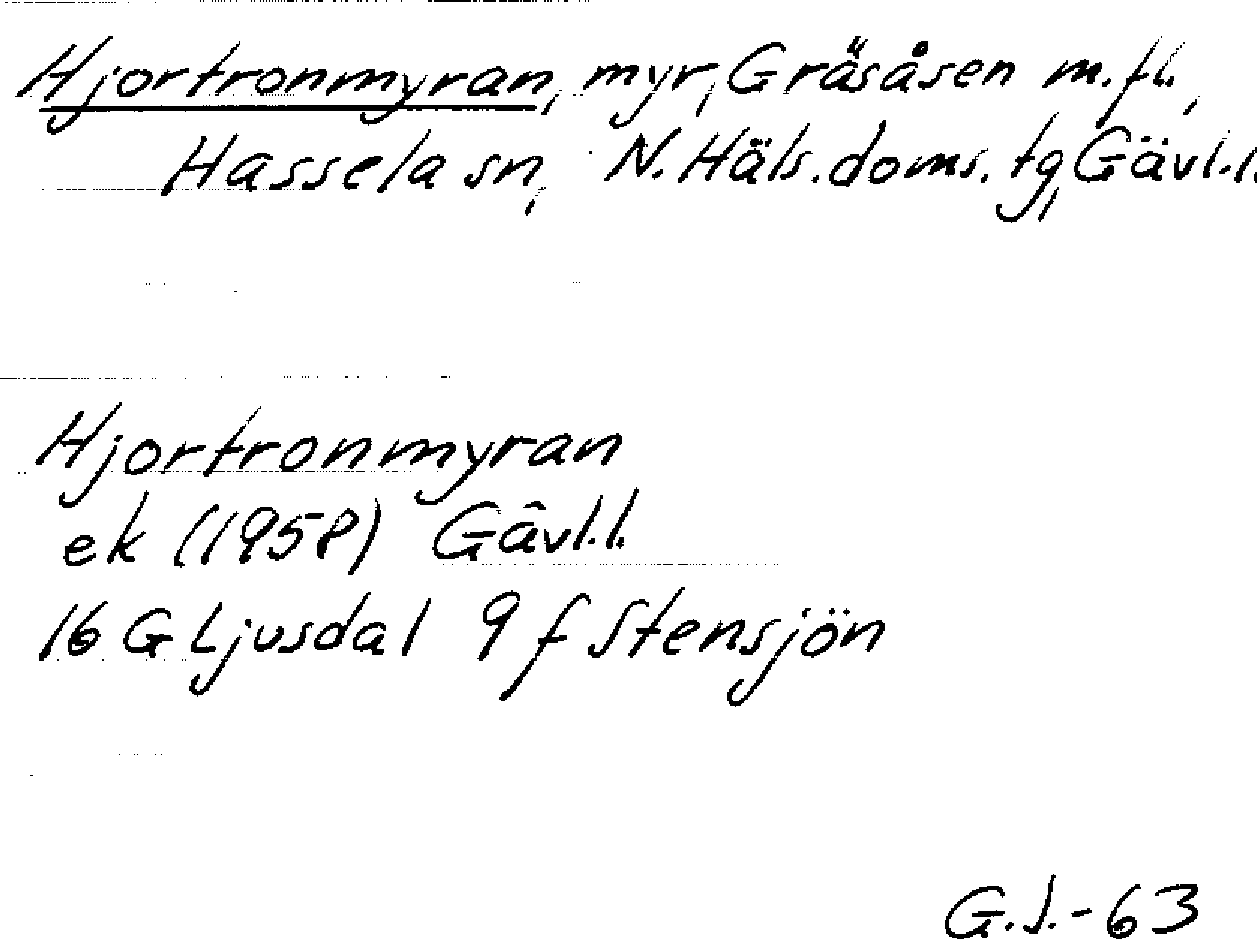 Hjortronmyran, myr, Gräsåsen m.fl.,
Hassela sn, N. Häls. doms. tg, Gävl.l.
Hjortronmyran
ek (1958) Gävl.l.
16 G Ljusdal 9 f Stensjön
G.J.-63